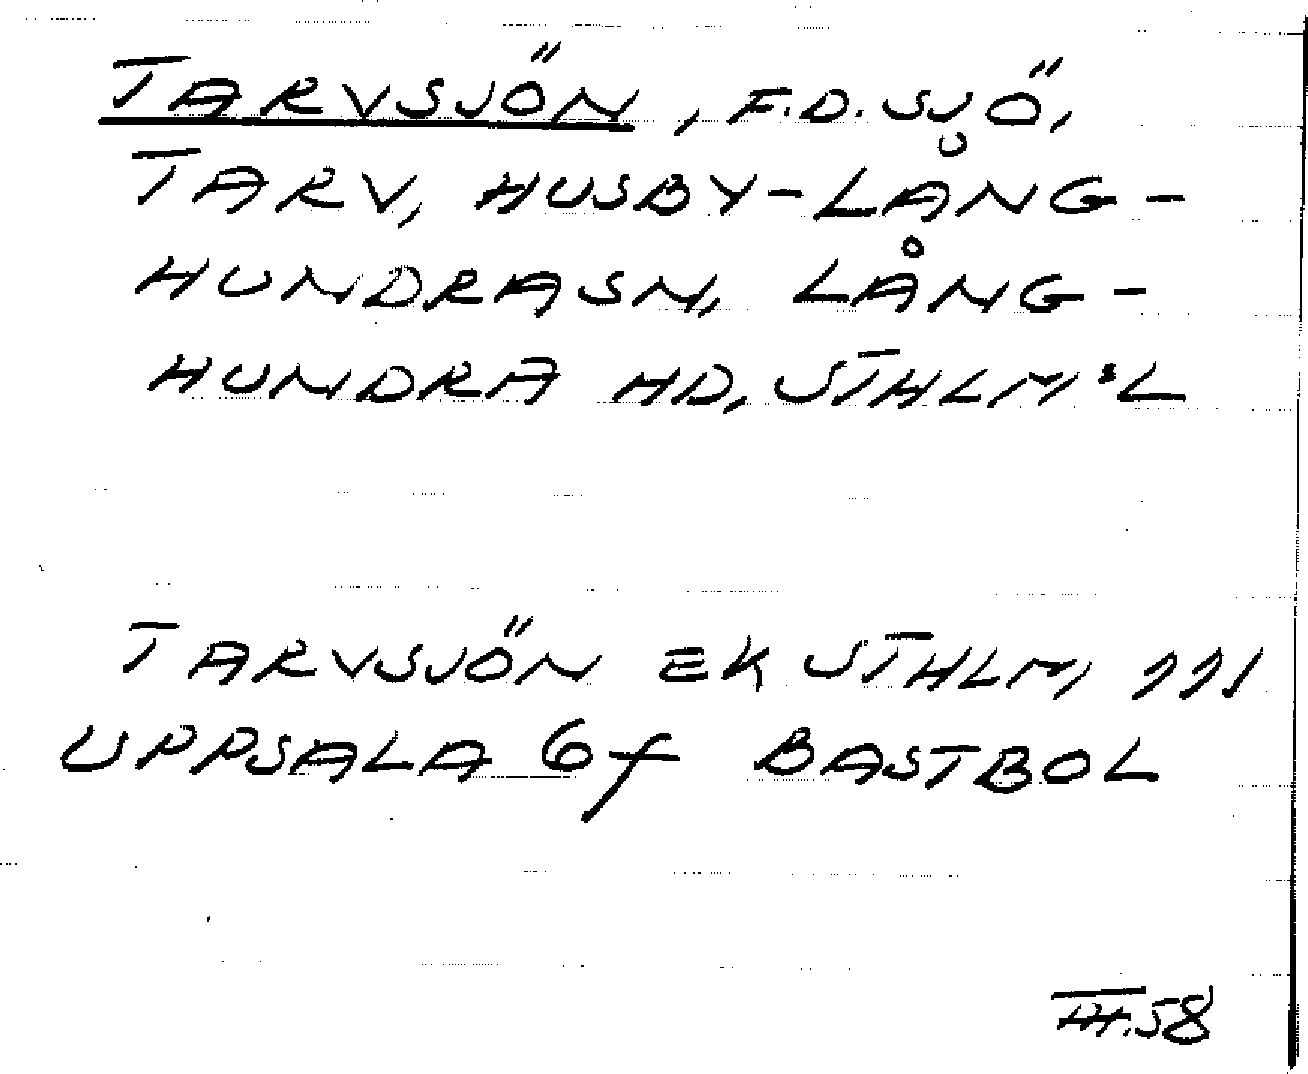 TARVSJÖN, F.D. SJÖ,
TARV, HUSBY-LÅNG-
HUNDRASN, LÅNG-
HUNDRA HD, STHLM:L
TARVSJÖN EK STHLM, 111
UPPSALA 6f BASTBOL
58